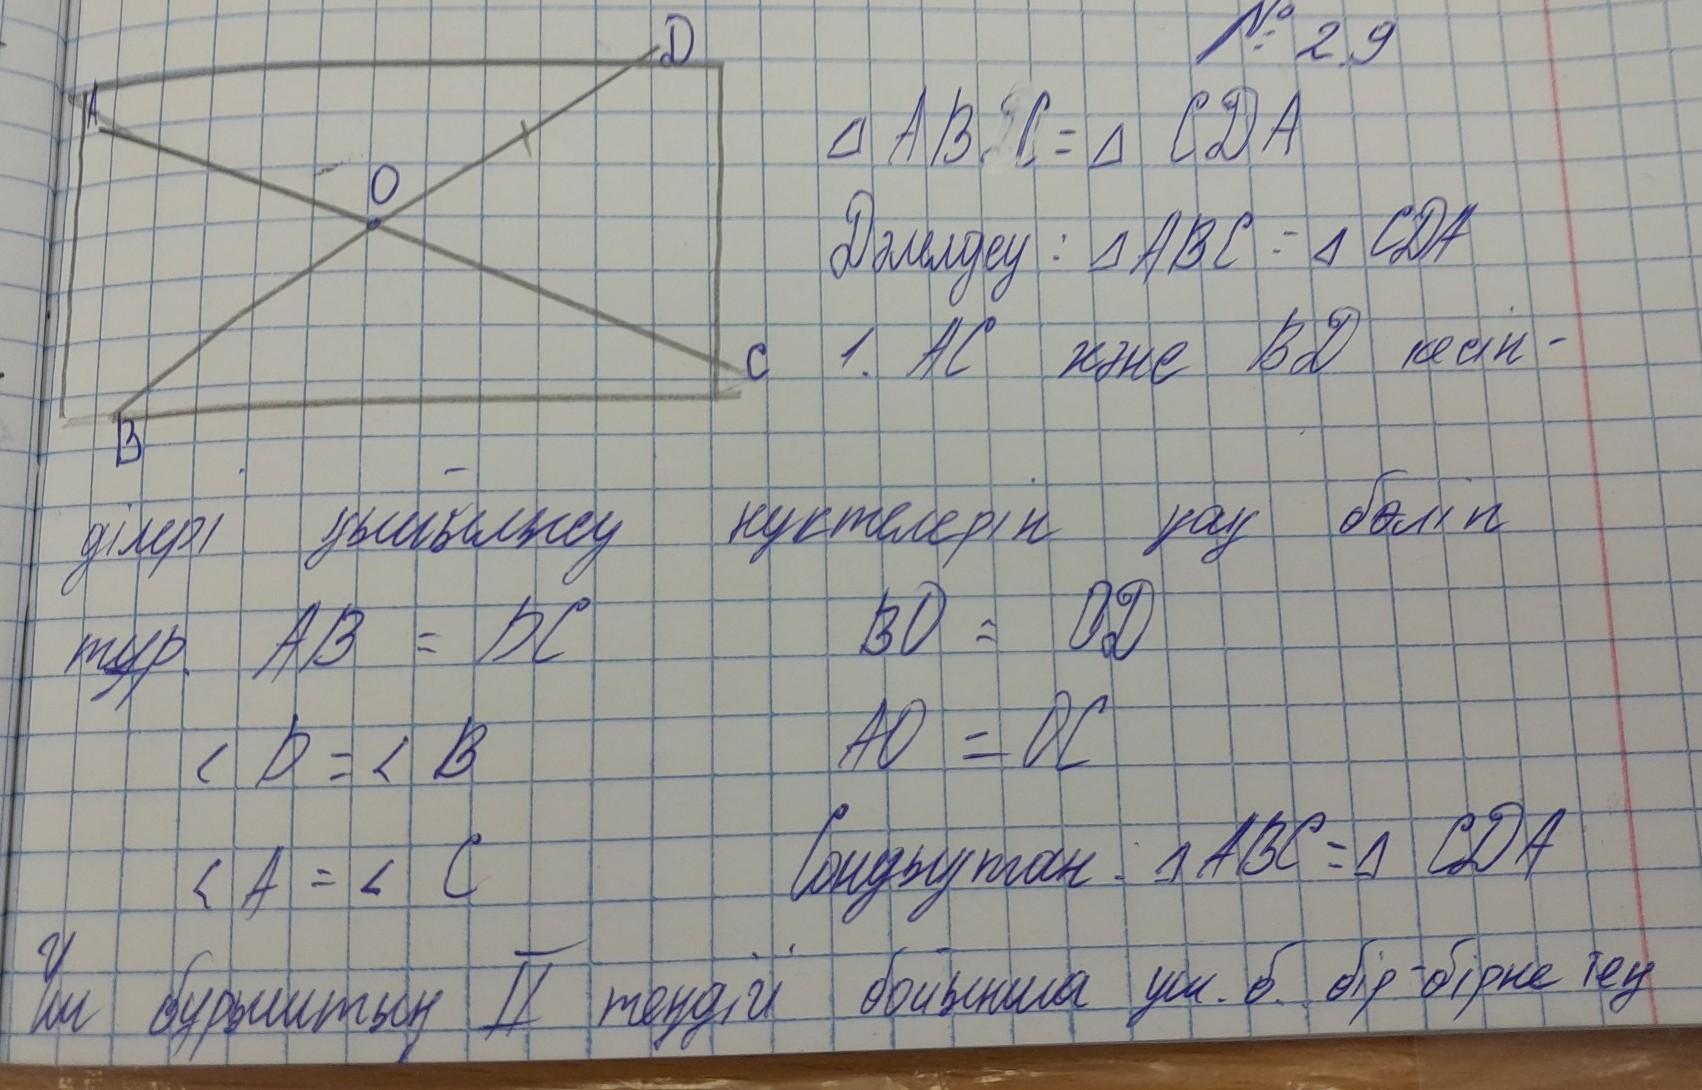 № 2.9
A
D
O
B
C
△ ABC = △ CDA
Дәлелдеу : △ ABC = △ CDA
1. AC және BD кесін-
ділері қиылысу нүктелерін қақ бөліп
тұр. AB = DC BO = OD
< D = < B AO = OC
< A = < C Сондықтан : △ ABC = △ CDA
Үш бұрыштың II теңдігі бойынша үш. б. бір-біріне тең